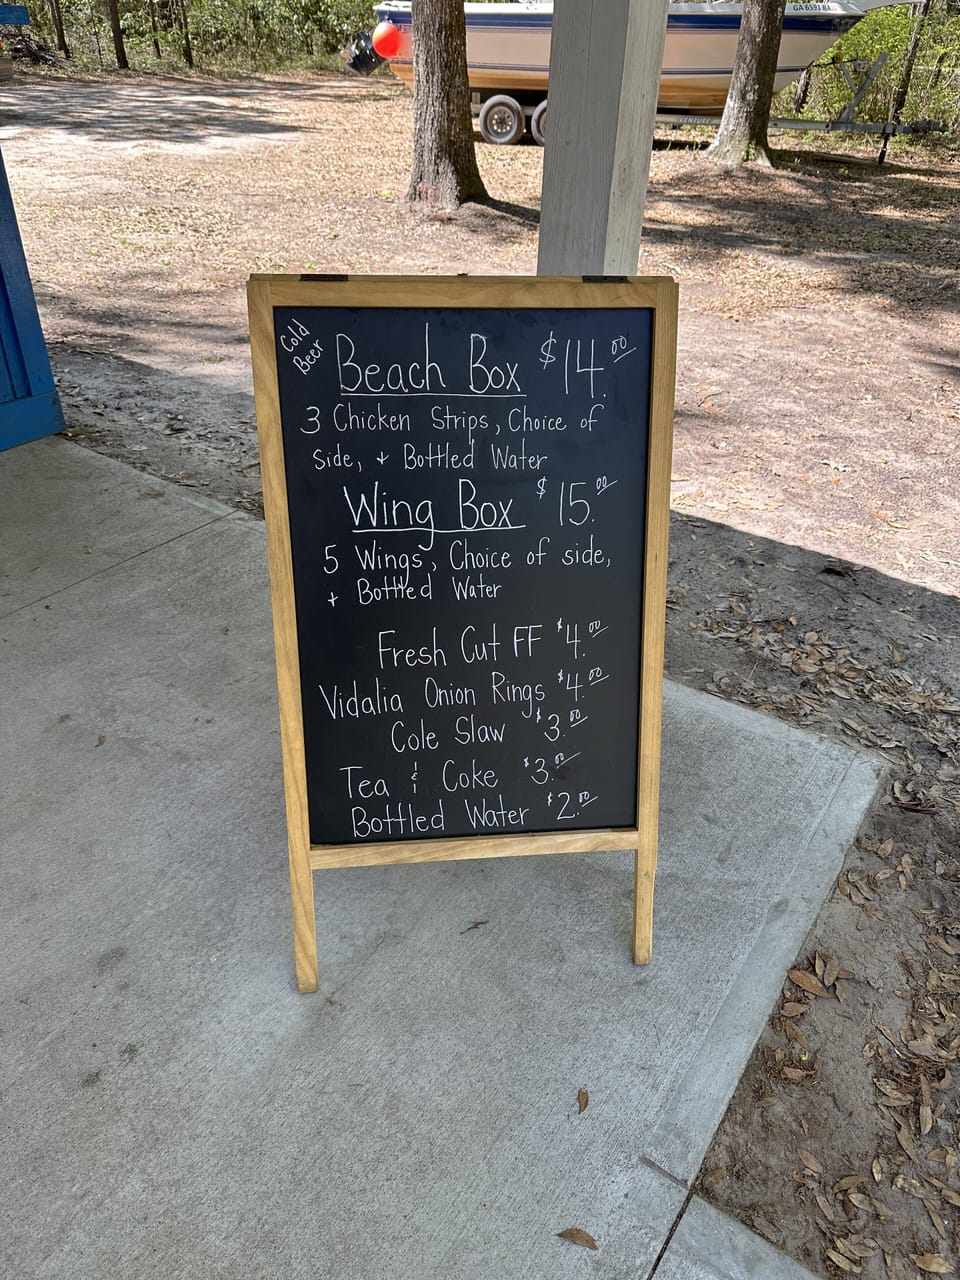 GA 6591 BA
VENTURE
Cold
Beer
Beach Box $14.00
3 Chicken Strips, Choice of
Side, + Bottled Water
Wing Box $15.00
5 Wings, Choice of side,
+ Bottled Water
Fresh Cut FF $4.00
Vidalia Onion Rings $4.00
Cole Slaw $3.00
Tea & Coke $3.00
Bottled Water $2.00